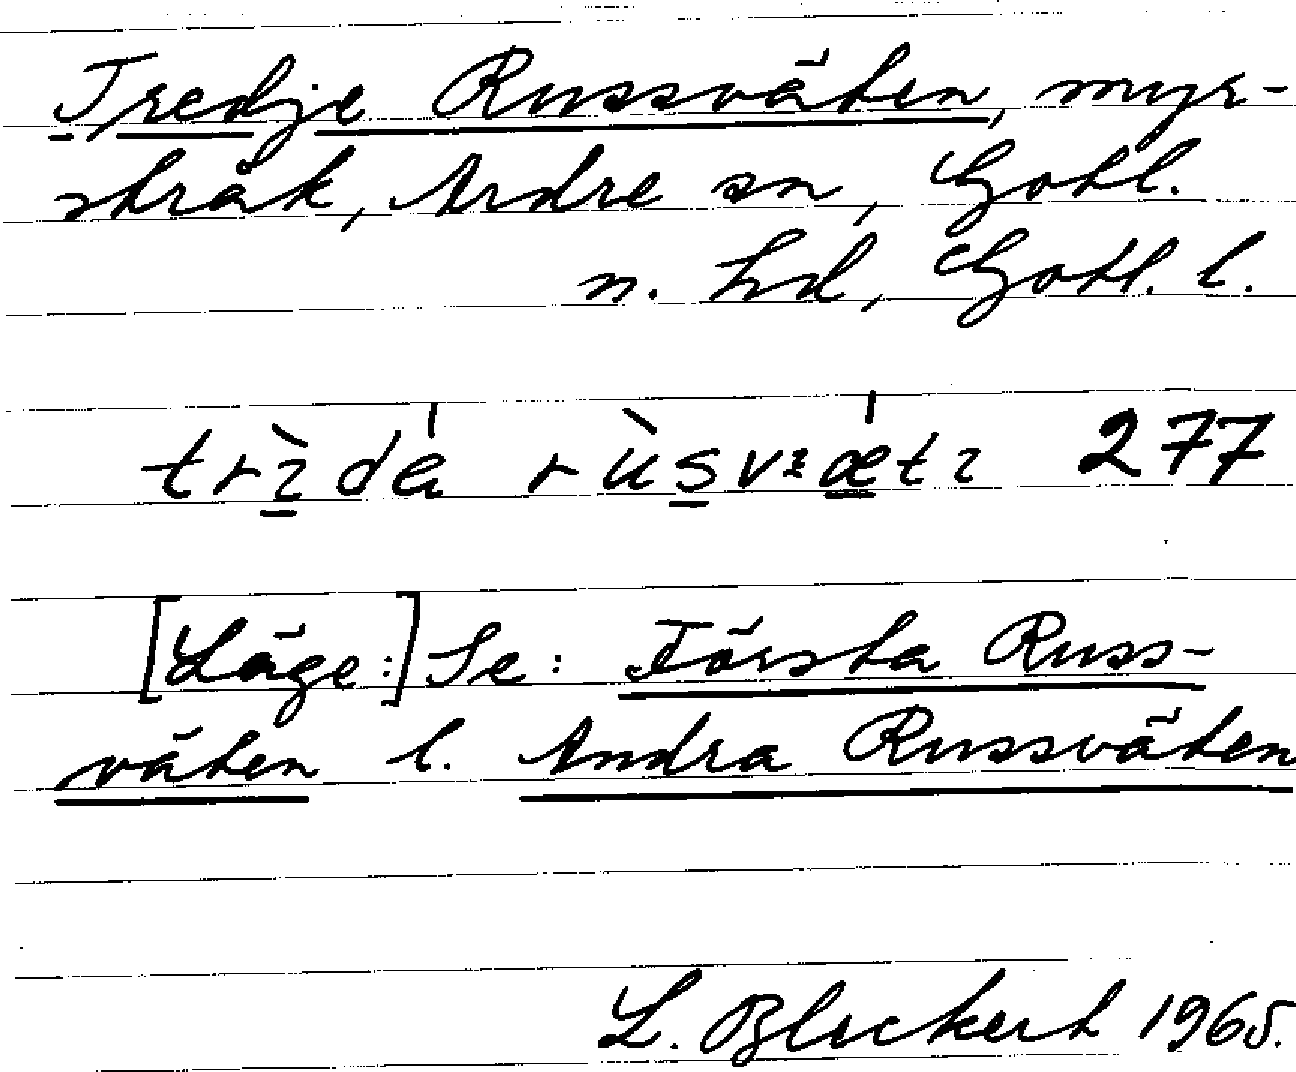 Tredje Russväten, myr-
stråk, Ardre sn, Gotl.
n. hd, Gotl. l.
277
[Läge:] Se: Första Russ-
väten l. Andra Russväten
L. Bleckert 1965.